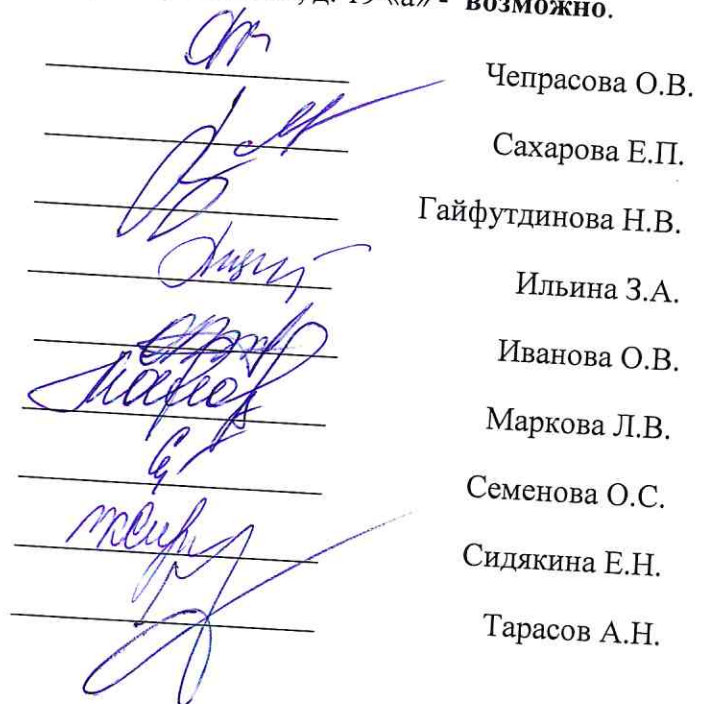 д. 19 «а» - возможно.
Чепрасова О.В.
Сахарова Е.П.
Гайфутдинова Н.В.
Ильина З.А.
Иванова О.В.
Маркова Л.В.
Семенова О.С.
Сидякина Е.Н.
Тарасов А.Н.